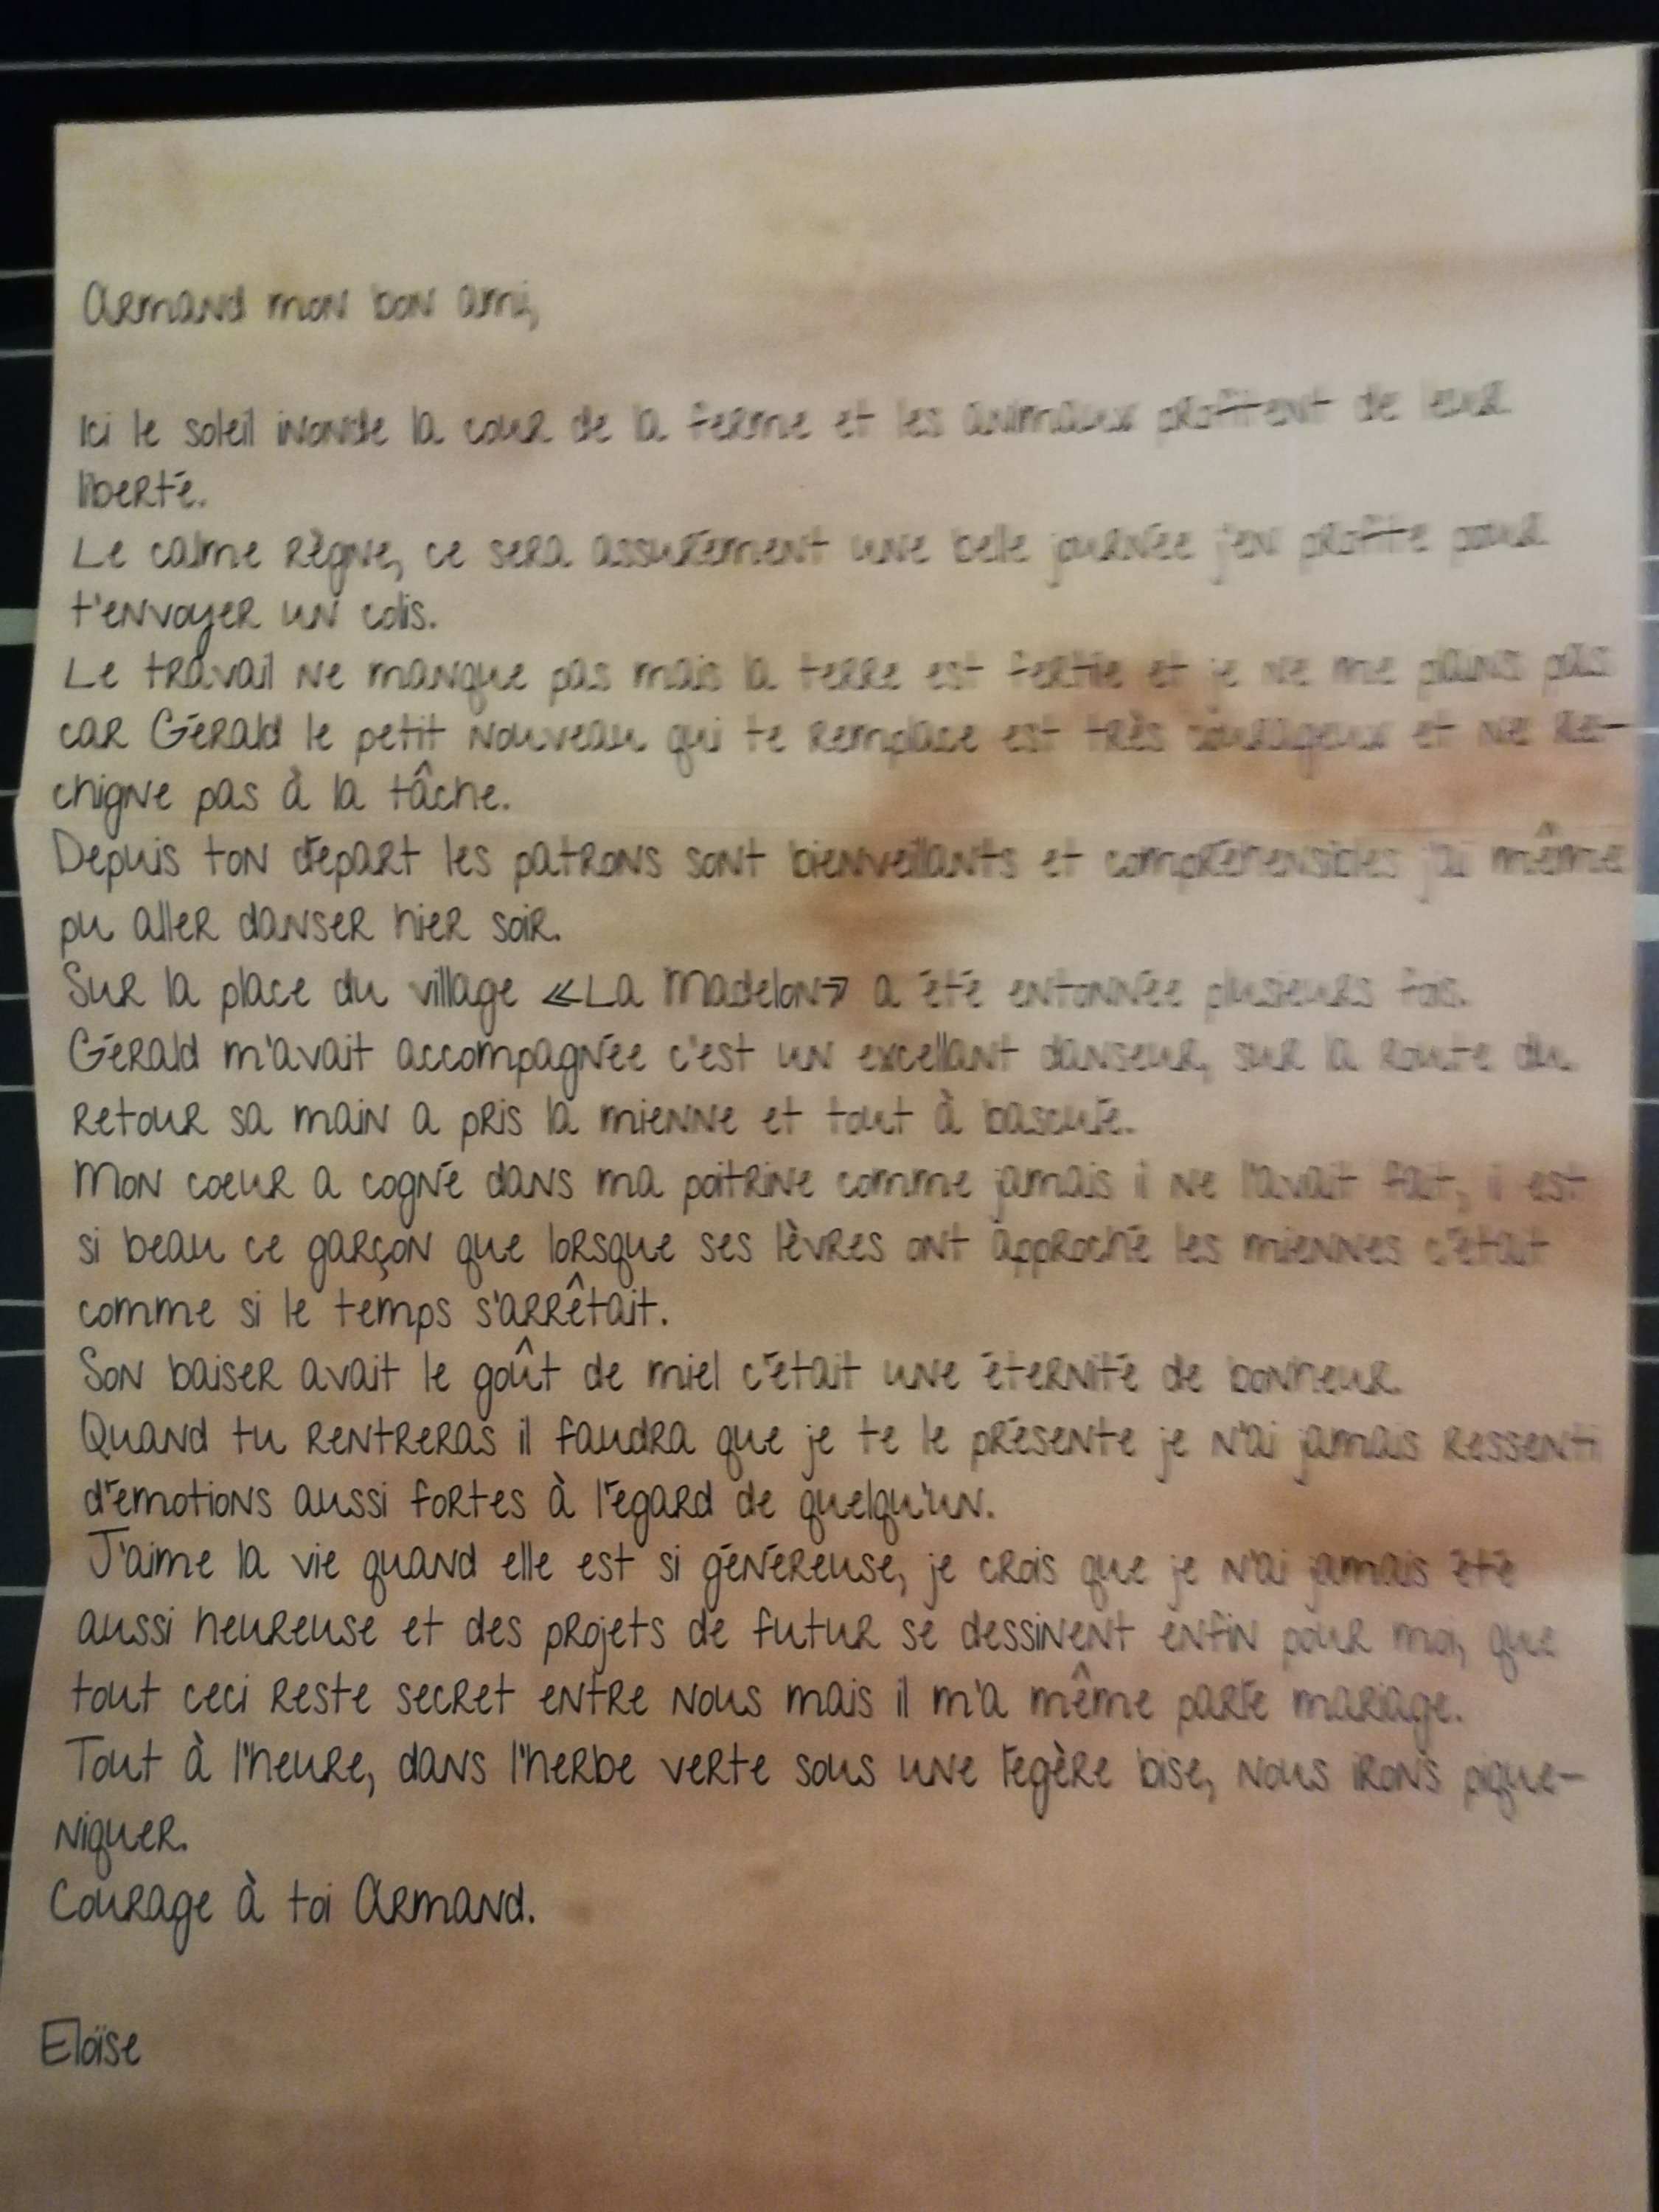 Armand mon bon ami,
Ici le soleil inonde la cour de la ferme et les animaux profitent de leur
liberté.
Le calme règne, ce sera assurément une belle journée j'en profite pour
t'envoyer un colis.
Le travail ne manque pas mais la terre est fertile et je ne me plains pas
car Gérald le petit nouveau qui te remplace est très courageux et ne re-
chigne pas à la tâche.
Depuis ton départ les patrons sont bienveillants et compréhensibles j'ai même
pu aller danser hier soir.
Sur la place du village «La Madelon» a été entonnée plusieurs fois.
Gérald m'avait accompagnée c'est un excellant danseur, sur la route du
retour sa main a pris la mienne et tout à basculé.
Mon coeur a cogné dans ma poitrine comme jamais il ne l'avait fait, il est
si beau ce garçon que lorsque ses lèvres ont approché les miennes c'était
comme si le temps s'arrêtait.
Son baiser avait le goût de miel c'était une éternité de bonheur.
Quand tu rentreras il faudra que je te le présente je n'ai jamais ressenti
d'émotions aussi fortes à l'égard de quelqu'un.
J'aime la vie quand elle est si généreuse, je crois que je n'ai jamais été
aussi heureuse et des projets de futur se dessinent enfin pour moi, que
tout ceci reste secret entre nous mais il m'a même parlé mariage.
Tout à l'heure, dans l'herbe verte sous une légère bise, nous irons pique-
niquer.
Courage à toi Armand.
Eloïse